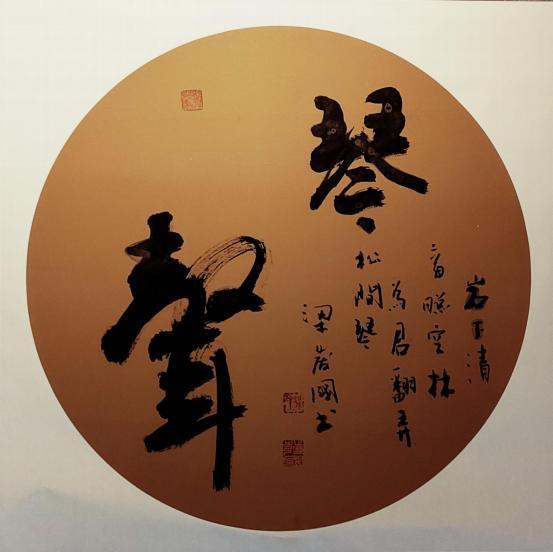 琴
聲
岩下清
音聽空林
為君翻弄
松間琴
梁國書